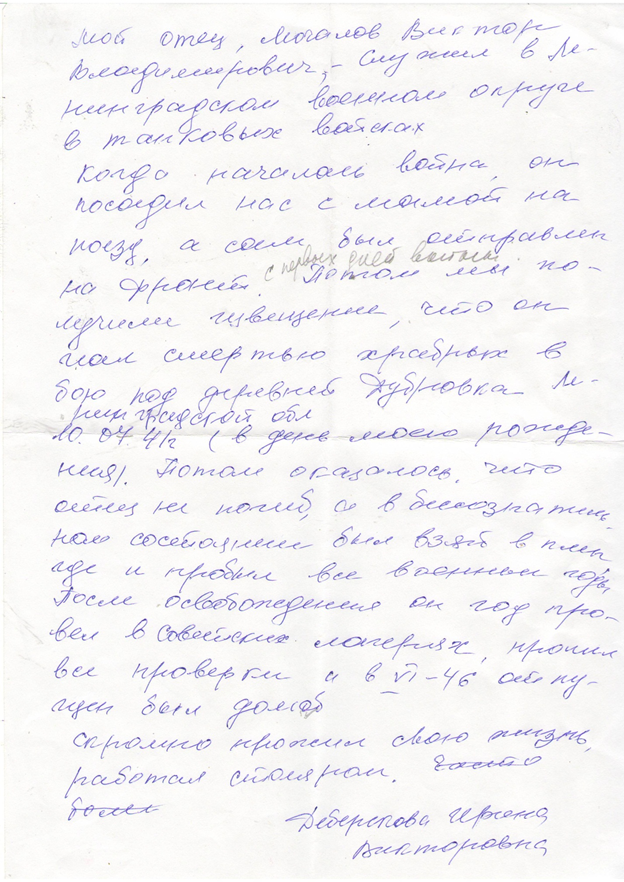 Мой отец, Мочалов Виктор
Владимирович, – служил в Ле-
нинградском военном округе
в танковых войсках
Когда началась война, он
посадил нас с мамой на
поезд, а сам был отправлен
с первых дней войны
на фронт. Потом мы по-
лучили извещение, что он
пал смертью храбрых в
бою под деревней Дубровка Ле-
нинградской обл
10.07.41г (в день моего рожде-
ния). Потом оказалось, что
отец не погиб, а в бессознатель-
ном состоянии был взят в плен
где и пробыл все военные годы
После освобождения он год про-
вел в советских лагерях, прошел
все проверки и в VI-46 отпу-
щен был домой
скромно прожил свою жизнь,
работал столяром. Часто
болел
Ирина
Викторовна